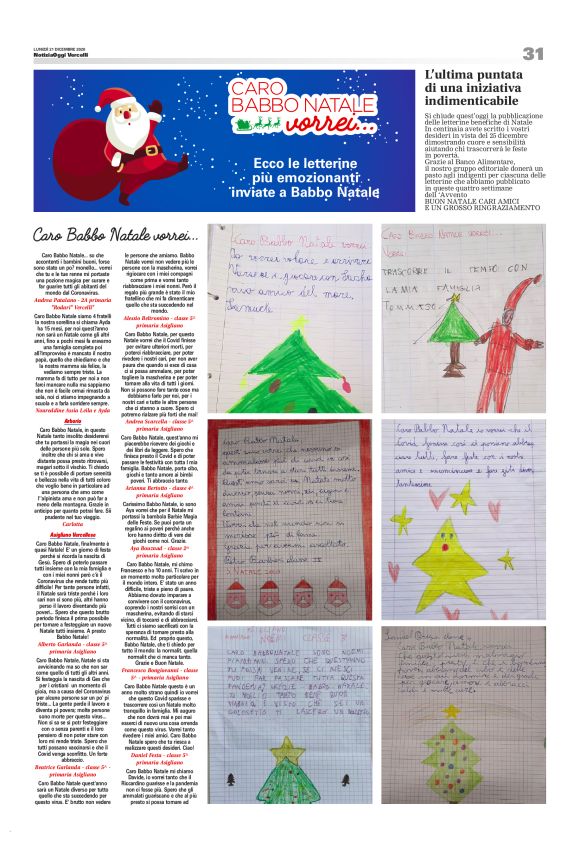 LUNEDÌ 21 DICEMBRE 2020
NotiziaOggi Vercelli
31
CARO
BABBO NATALE
vorrei...
Ecco le letterine
più emozionanti
inviate a Babbo Natale
L'ultima puntata
di una iniziativa
indimenticabile
Si chiude quest'oggi la pubblicazione
delle letterine benefiche di Natale
In centinaia avete scritto i vostri
desideri in vista del 25 dicembre
dimostrando cuore e sensibilità
aiutando chi trascorrerà le feste
in povertà.
Grazie al Banco Alimentare,
il nostro gruppo editoriale donerà un
pasto agli indigenti per ciascuna delle
letterine che abbiamo pubblicato
in queste quattro settimane
dell'Avvento
BUON NATALE CARI AMICI
E UN GROSSO RINGRAZIAMENTO
Caro Babbo Natale vorrei...
Caro Babbo Natale... so che
accontenti i bambini buoni, forse
sono stato un po' monello... vorrei
che tu e la tua renne mi portaste
una pozione magica per curare e
far guarire tutti gli abitanti del
mondo dal Coronavirus.
Andrea Patalano - 2A primaria
"Rodari" Vercelli
Caro Babbo Natale siamo 4 fratelli
la nostra sorellina si chiama Ayda
ha 15 mesi, per noi quest'anno
non sarà un Natale come gli altri
anni, fino a pochi mesi fa eravamo
una famiglia completa poi
all'improvviso è mancato il nostro
papà, quello che chiediamo e che
la nostra mamma sia felice, la
vediamo sempre triste. La
mamma fa di tutto per noi a non
farci mancare nulla ma sappiamo
che non è facile ormai rimasta da
sola, noi ci stiamo impegnando a
scuola e a farla sorridere sempre.
Nouraddine Assia Leila e Ayda
Arborio
Caro Babbo Natale, in questo
Natale tanto insolito desidererei
che tu portassi la magia nei cuori
delle persone più sole. Spero
inoltre che chi si ama e vive
distante possa presto ritrovarsi,
magari sotto il vischio. Ti chiedo
se ti è possibile di portare serenità
e bellezza nella vita di tutti coloro
che voglio bene in particolare ad
una persona che amo come
l'alpinista ama e non può far a
meno della montagna. Grazie in
anticipo per quanto potrai fare. Sii
prudente nel tuo viaggio.
Carlotta
Asigliano Vercellese
Caro Babbo Natale, finalmente è
quasi Natale! E' un giorno di festa
perché si ricorda la nascita di
Gesù. Spero di poterlo passare
tutti insieme con la mia famiglia e
con i miei nonni però c'è il
Coronavirus che rende tutto più
difficile! Per tante persone infatti,
il Natale sarà triste perché i loro
cari non ci sono più, altri hanno
perso il lavoro diventando più
poveri... Spero che questo brutto
periodo finisca il prima possibile
per tornare a festeggiare un nuovo
Natale tutti insieme. A presto
Babbo Natale!
Alberto Garlanda - classe 5ª
primaria Asigliano
Caro Babbo Natale, Natale si sta
avvicinando ma so che non sar
come quello di tutti gli altri anni.
Si festeggia la nascita di Gesù che
per i cristiani è un momento di
gioia, ma a causa del Coronavirus
per alcune persone sar un po' più
triste... La gente perde il lavoro o
diventa più povera; molte persone
sono morte per questo virus...
Non si sa se si potr festeggiare
con o senza parenti e il loro
pensiero di non poter stare con
loro mi rende triste. Spero che
tutti possano vaccinarsi e che il
Covid venga sconfitto. Un forte
abbraccio.
Beatrice Garlanda - classe 5ª -
primaria Asigliano
Caro Babbo Natale quest'anno
sarà un Natale diverso per tutto
quello che sta succedendo per
questo virus. E' brutto non vedere
le persone che amiamo. Babbo
Natale vorrei non vedere più le
persone con la mascherina, vorrei
rigiocare con i miei compagni
come prima e vorrei tanto
riabbracciare i miei nonni. Però il
regalo più grande è stato il mio
fratellino che mi fa dimenticare
quello che sta succedendo nel
mondo.
Alessio Beltramino - classe 5ª
primaria Asigliano
Caro Babbo Natale, per questo
Natale vorrei che il Covid finisse
per evitare ulteriori morti, per
poterci riabbracciare, per poter
rivedere i nostri cari, per non aver
paura che quando si esce di casa
ci si possa ammalare, per poter
togliere la mascherina e per poter
tornare alla vita di tutti i giorni.
Non si possono fare tante cose ma
dobbiamo farlo per noi, per i
nostri cari e tutte le altre persone
che ci stanno a cuore. Spero ci
potremo rialzare più forti che mai!
Andrea Scarcella - classe 5ª
primaria Asigliano
Caro Babbo Natale, quest'anno mi
piacerebbe ricevere dei giochi e
dei libri da leggere. Spero che
finisca presto il Covid e di poter
passare le festività con tutta l mia
famiglia. Babbo Natale, porta cibo,
giochi e tanto amore ai bimbi
poveri. Ti abbraccio tanto
Arianna Bertotto - classe 4ª
primaria Asigliano
Carissimo Babbo Natale, io sono
Aya vorrei che per il Natale mi
portassi la bambola Barbie Magia
delle Feste. Se puoi porta un
regalino ai poveri perché anche
loro hanno diritto di veni dei
giochi come noi. Grazie.
Aya Bouzzad - classe 2ª
primaria Asigliano
Caro Babbo Natale, mi chiamo
Francesco e ho 10 anni. Ti scrivo in
un momento molto particolare per
il mondo intero. E' stato un anno
difficile, triste e pieno di paure.
Abbiamo dovuto imparare a
convivere con il coronavirus,
coprendo i nostri sorrisi con un
mascherina, evitando di starsi
vicino, di toccarsi e di abbracciarsi.
Tutti ci siamo sacrificati con la
speranza di tornare presto alla
normalità. Ed proprio questo,
Babbo Natale, che ti chiedo per
tutto il mondo: la normalit, quella
normalit che ci manca tanto.
Grazie e Buon Natale.
Francesco Bongiovanni - classe
5ª - primaria Asigliano
Caro Babbo Natale questo è un
anno molto strano quindi io vorrei
che questo Covid sparisse e
trascorrere così un Natale molto
tranquillo in famiglia. Mi auguro
che non dovra mai e poi mai
esserci di nuovo una cosa orrenda
come questo virus. Vorrei tanto
rivedere i miei amici. Caro Babbo
Natale spero che tu riesca a
realizzare questi desideri. Ciao!
Daniel Festa - classe 5ª
primaria Asigliano
Caro Babbo Natale mi chiamo
Davide, io vorrei tanto che il
Riccardino guarisse e la pandemia
non ci fosse più. Spero che gli
ammalati guariscano e che al più
presto si possa tornare ad
Caro Babbo Natale vorrei
CARO BABBO NATALE VORREI...
VORREI
TRASCORRERE IL TEMPO CON
LA MIA FAMIGLIA
TOMMASO
Caro Babbo Natale
Caro Babbo Natale io vorrei che il
CLASSE 3ª
CARO BABBO NATALE SONO NOEMI